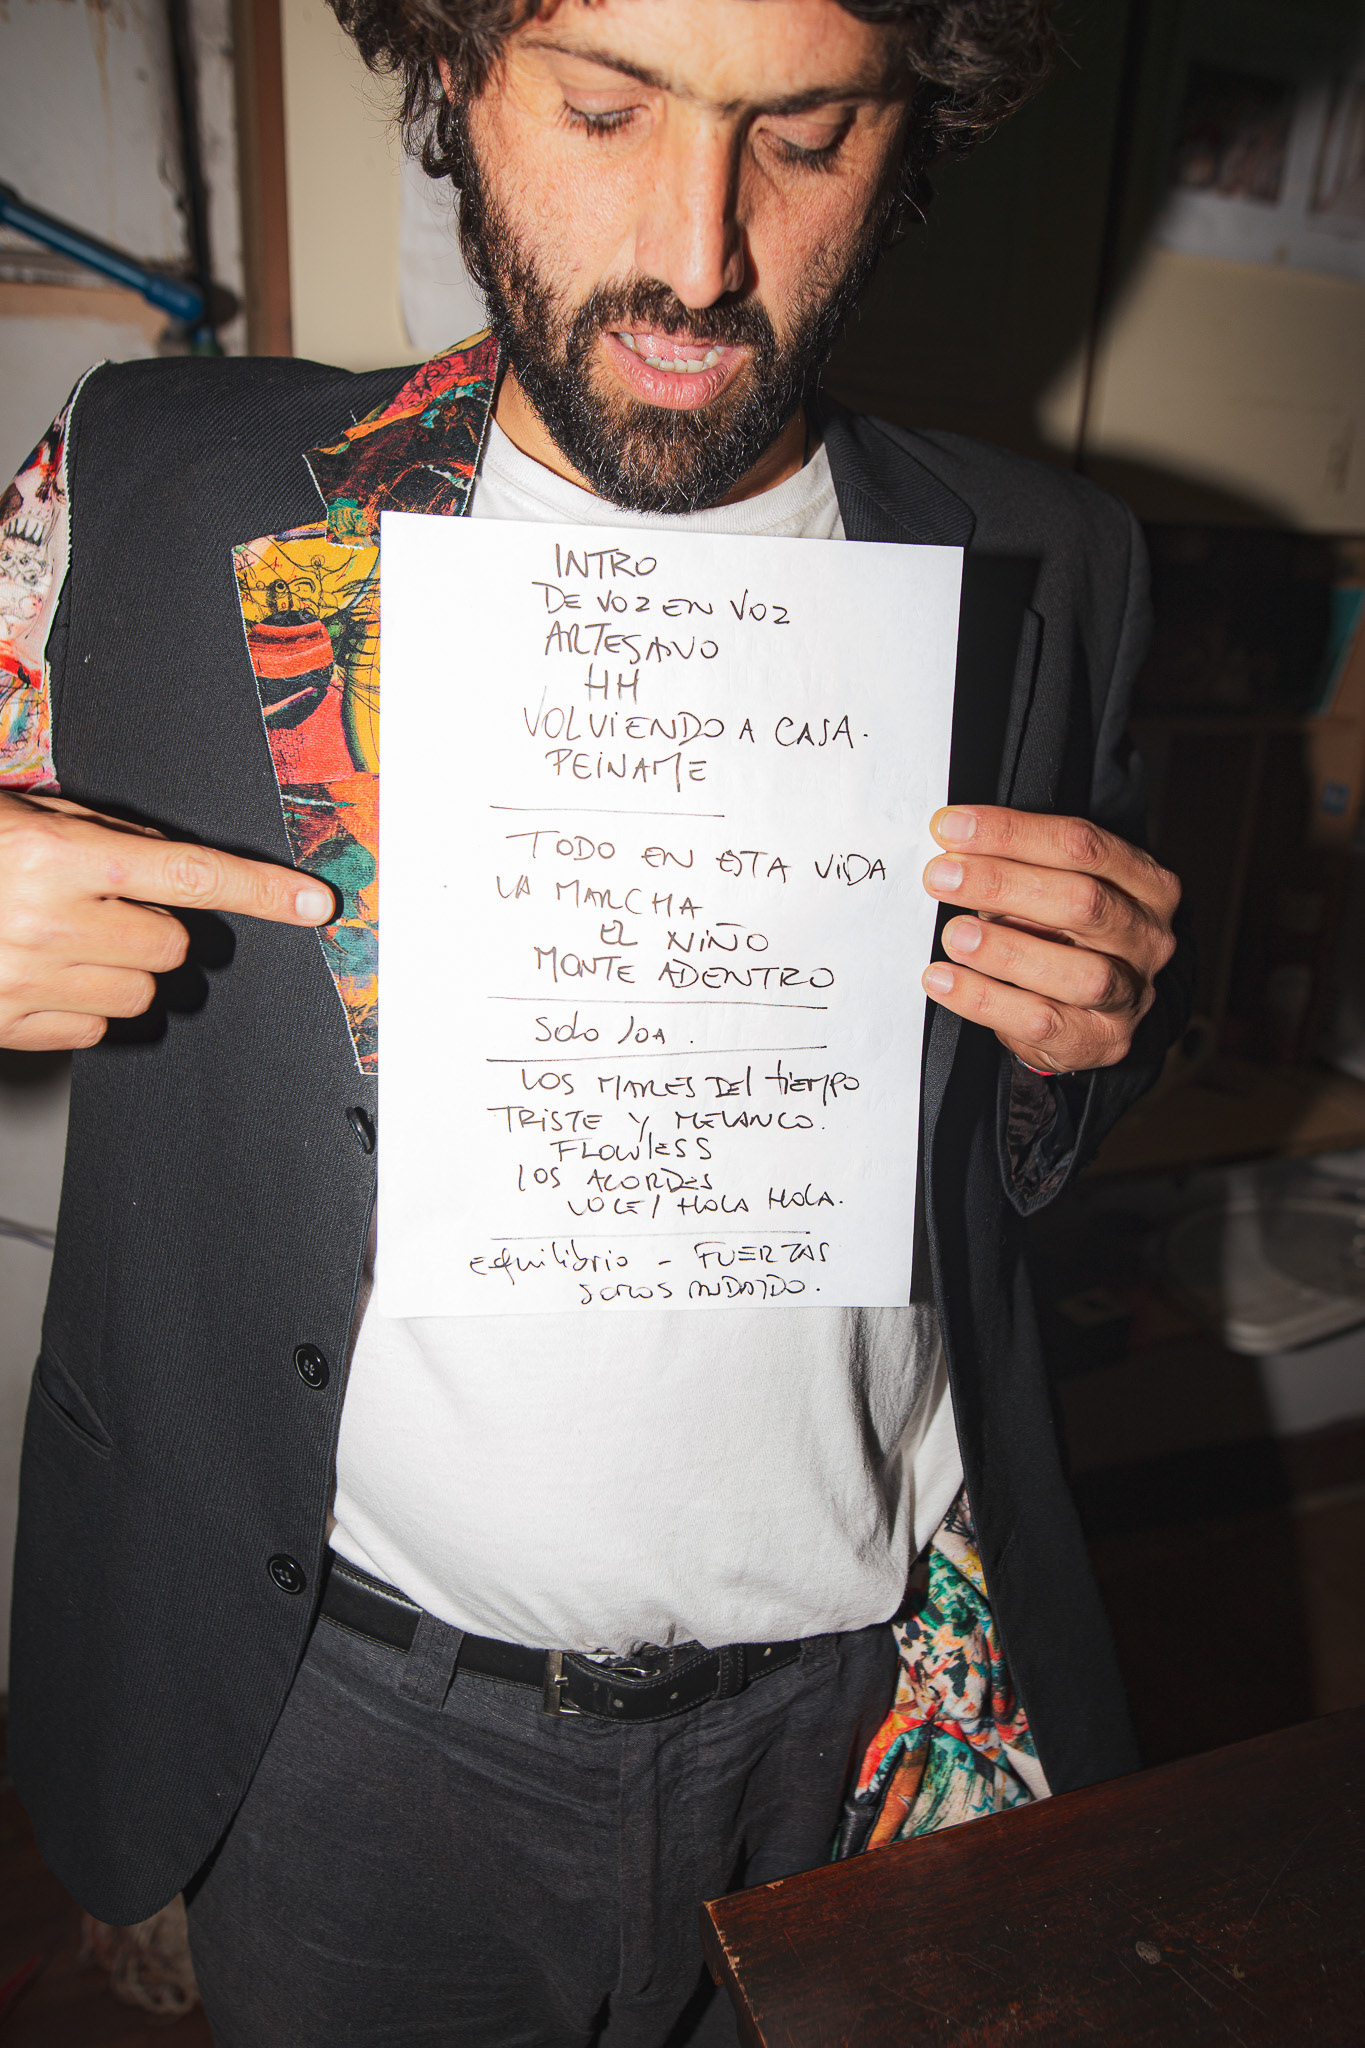 INTRO
DE VOZ EN VOZ
ARTESANO
HH
VOLVIENDO A CASA.
PEINAME
TODO EN ESTA VIDA
LA MARCHA
EL NIÑO
MONTE ADENTRO
Solo
LOS MARES DEl tiEMPO
TRiSTE Y MELANCO.
FLOWLESS
lOS ACORDES
VOCE / HOLA HOLA.
equilibrio - FUERZAS